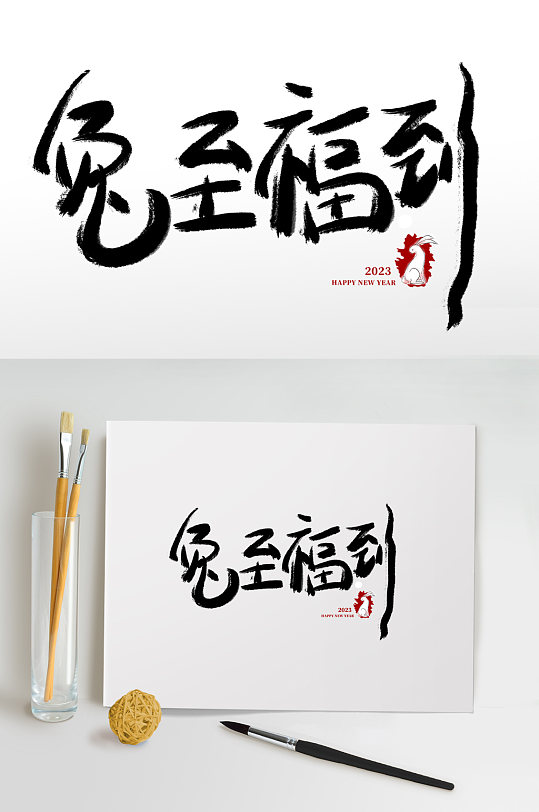 兔至福到
2023
HAPPY NEW YEAR
兔至福到
2023
HAPPY NEW YEAR